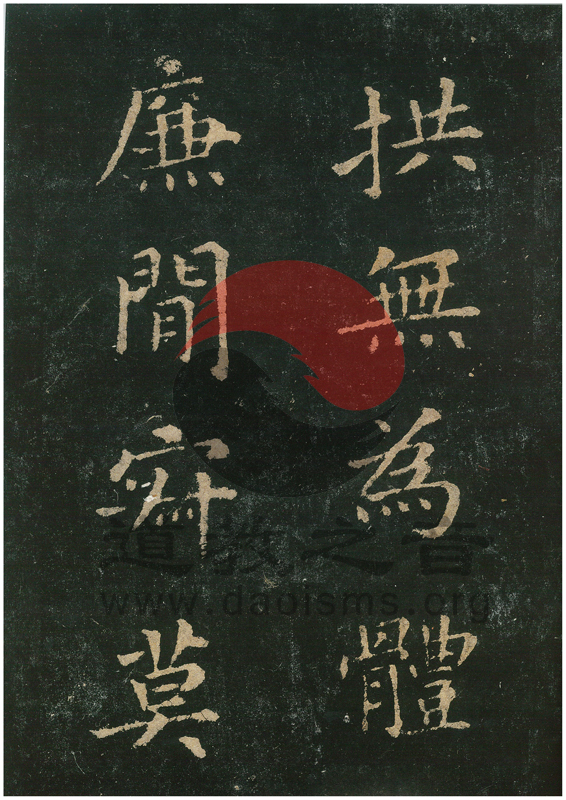 拱無為體
廉閒莫
道教之音
www.daoisms.org